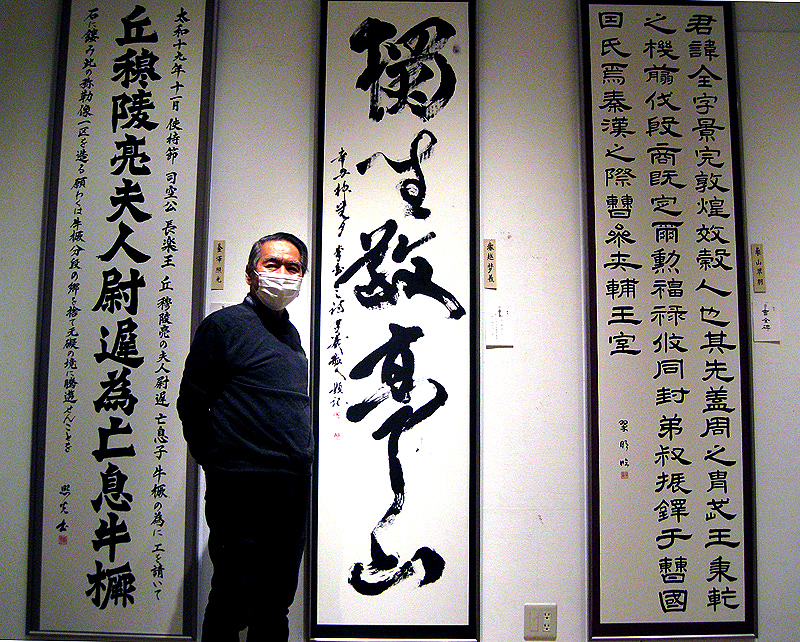 君諱全字景完敦煌效穀人也其先蓋周之冑武王秉乾
之機翦伐殷商既定爾勲福禄攸同封弟叔振鐸于曹國
因氏焉秦漢之際曹參夾輔王室
曹全碑
獨坐敬亭山
太和十九年十一月 使持節 司空公 長楽王 丘穆陵亮の夫人尉遅 亡息子 牛橛の為に 工を請いて
丘穆陵亮夫人尉遅為亡息牛橛
石に鏤み此の弥勒像一区を造る 願わくは牛橛分段の郷を捨て 无礙の境に騰遊せんことを
照光書
金澤照光